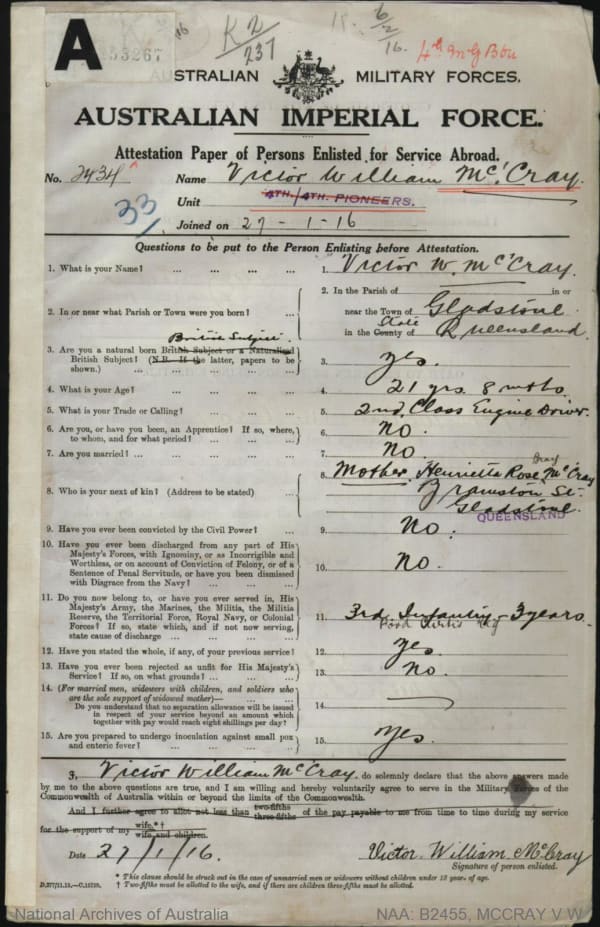 A
53267
16
K2/237
6/2/16.
4th M G Bn
AUSTRALIAN MILITARY FORCES.
AUSTRALIAN IMPERIAL FORCE.
Attestation Paper of Persons Enlisted for Service Abroad.
No. 2434 Name Victor William McCray.
33 Unit 4TH. PIONEERS.
Joined on 27 - 1 - 16
Questions to be put to the Person Enlisting before Attestation.
1. What is your Name? ... ... ... ... 1. Victor W. McCray.
2. In the Parish of in or
2. In or near what Parish or Town were you born? ... near the Town of Gladstone
State
in the County of Queensland.
British Subject.
3. Are you a natural born British Subject or a Naturalized
British Subject? (N.B. If the latter, papers to be 3. yes.
shown.) ... ... ... ... ...
4. What is your Age? ... ... ... ... 4. 21 yrs 8 mths
5. What is your Trade or Calling? ... ... ... 5. 2nd Class Engine Driver.
6. Are you, or have you been, an Apprentice? If so, where, 6. No.
to whom, and for what period? ... ... ...
7. Are you married? ... ... ... ... 7. No.
8. Mother. Henrietta Rose McCray
8. Who is your next of kin? (Address to be stated) ... Bramston St.
Gladstone.
QUEENSLAND
9. Have you ever been convicted by the Civil Power? ... 9. No.
10. Have you ever been discharged from any part of His
Majesty's Forces, with Ignominy, or as Incorrigible and
Worthless, or on account of Conviction of Felony, or of a 10. No.
Sentence of Penal Servitude, or have you been dismissed
with Disgrace from the Navy? ... ... ...
11. Do you now belong to, or have you ever served in, His
Majesty's Army, the Marines, the Militia, the Militia
Reserve, the Territorial Force, Royal Navy, or Colonial 11. 3rd Infantry - 3 years.
Forces? If so, state which, and if not now serving, Port Curtis
state cause of discharge ... ... ... ...
12. Have you stated the whole, if any, of your previous service? 12. Yes.
13. Have you ever been rejected as unfit for His Majesty's 13. No.
Service? If so, on what grounds? ... ... ...
14. (For married men, widowers with children, and soldiers who
are the sole support of widowed mother)—
Do you understand that no separation allowance will be issued 14.
in respect of your service beyond an amount which
together with pay would reach eight shillings per day?
15. Are you prepared to undergo inoculation against small pox 15. Yes.
and enteric fever? ... ... ... ...
I, Victor William McCray. do solemnly declare that the above answers made
by me to the above questions are true, and I am willing and hereby voluntarily agree to serve in the Military Forces of the
Commonwealth of Australia within or beyond the limits of the Commonwealth.
And I further agree to allot not less than two-fifths three-fifths of the pay payable to me from time to time during my service
for the support of my wife.*† wife and children.
Date 27/1/16. Victor William McCray
Signature of person enlisted.
* This clause should be struck out in the case of unmarried men or widowers without children under 18 years of age.
† Two-fifths must be allotted to the wife, and if there are children three-fifths must be allotted.
D.277/11.15.—C.15728.
National Archives of Australia NAA: B2455, MCCRAY V W